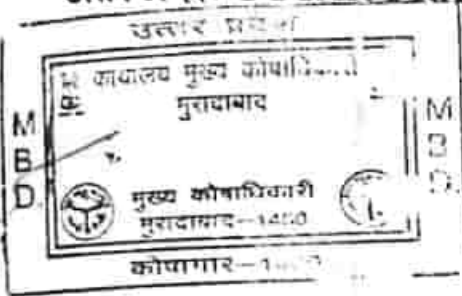 उत्तर प्रदेश
कार्यालय मुख्य कोषाधिकारी
मुरादाबाद
M
B
D.
M
B
D.
मुख्य कोषाधिकारी
मुरादाबाद-1400
कोषागार-